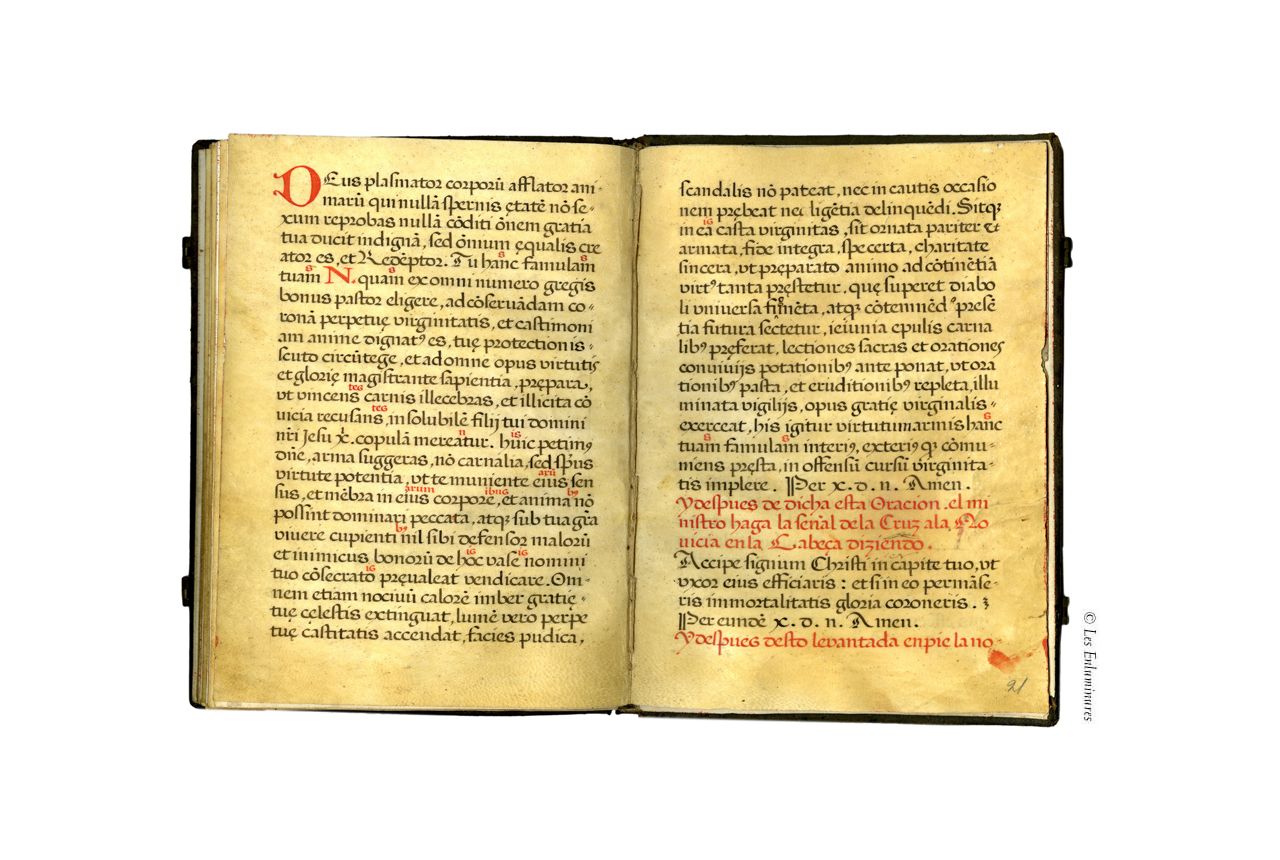 DEus plasmator corporū afflator ani-
marū qui nullā spernis ętatē nō se-
xum reprobas nullā cōditiōnem gratia
tua ducit indignā, sed ōnium ęqualis cre
ator es, et Redēptor. Tu hanc famulam
s s
tuam N. quam ex omni numero gregis
s s
bonus pastor eligere, ad cōseruādam co-
ronā perpetuę virginitatis, et castimoni
am anime dignatꝰ es, tuę protectionis-
scuto circūtege, et ad omne opus virtutis
et glorię magistrante sapientia, prępara,
vt vincens carnis illecebras, et illicita cō
tes
uicia recusans, insolubilē filij tui domini
tes
nr̄i Jesu x̄. copulā mereatur. huic petimꝰ
u is
dn̄e, arma suggeras, nō carnalia, sed sp̄us
virtute potentia, vt te muniente eius sen
arū
sus, et mēbra in eius corpore, et anima nō
arum ibus bꝰ
possint dominari peccata, atqꝫ sub tua gr̄a
viuere cupienti nil sibi defensor malorū
bꝰ
et inimicus bonorū de hoc vase nomini
is is
tuo cōsecrato pręualeat vendicare. Om-
is
nem etiam nociuū calorē imber gratię-
tuę cęlestis extinguat, lumē vero perpe
tuę castitatis accendat, facies pudica,
scandalis nō pateat, nec incautis occasio
nem prębeat negligētia delinquēdi. Sitqꝫ
in eā casta virginitas, sit ornata pariter et
is
armata, fide integra, spe certa, charitate
sincera, vt pręparato animo ad cōtinētiā
virtꝰ tanta pręstetur, quę superet diabo
li vniuersa figmēta, atqꝫ cōtemnēdꝰ presē
tia futura sectetur, ieiunia epulis carna
libꝰ pręferat, lectiones sacras et orationes
conuiuijs potationibꝰ ante ponat, vt ora
tionibꝰ pasta, et eruditionibꝰ repleta, illu
minata vigilijs, opus gratię virginalis-
exerceat, his igitur virtutum armis hanc
s
tuam famulam interiꝰ, exteriꝰqꝫ cōmu-
s s
niens pręsta, inoffensū cursū virginita-
tis implere. Per x. d. n. Amen.
Y despues de dicha esta Oracion. el mi
nistro haga la señal de la Cruz ala, No
uicia en la Cabeça diziendo.
Accipe signum Christi in capite tuo, vt
vxor eius efficiaris: et si in eo permāse-
ris immortalitatis gloria coroneris. ꝫ
Per eundē x. d. n. Amen.
Y despues desto leuantada en pie la no-
91
© Les Enluminures